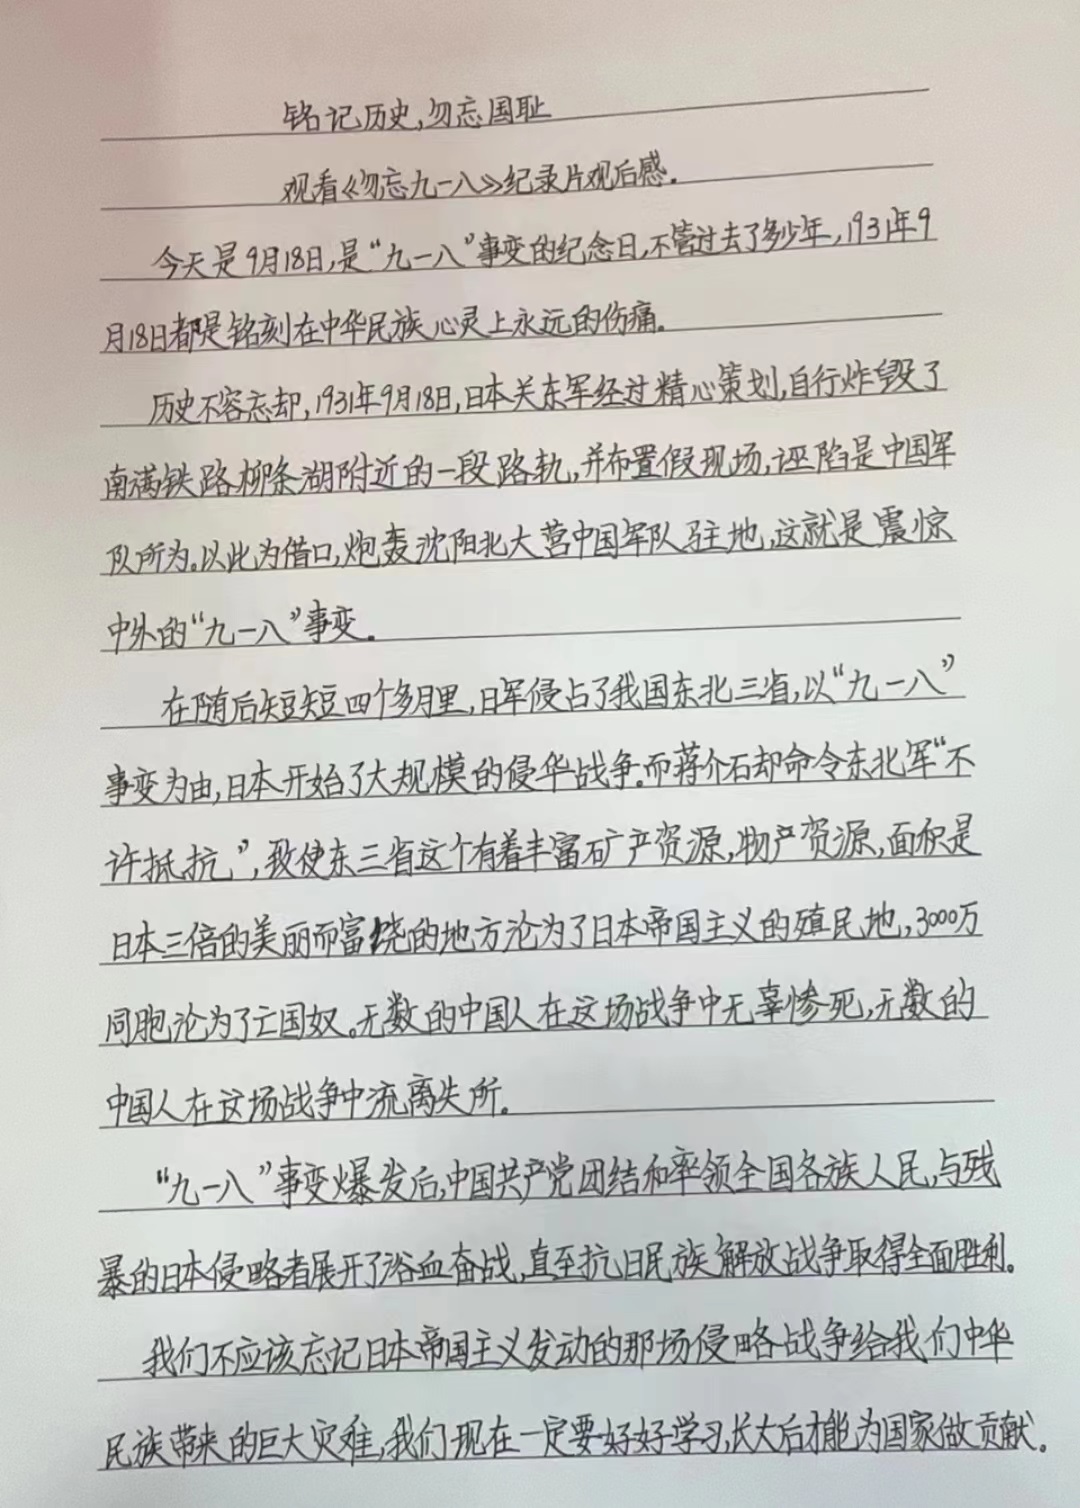 铭记历史,勿忘国耻
观看《勿忘九一八》纪录片观后感.
今天是9月18日,是“九一八”事变的纪念日,不管过去了多少年,1931年9
月18日都是铭刻在中华民族心灵上永远的伤痛。
历史不容忘却,1931年9月18日,日本关东军经过精心策划,自行炸毁了
南满铁路柳条湖附近的一段路轨,并布置假现场,诬陷是中国军
队所为。以此为借口,炮轰沈阳北大营中国军队驻地,这就是震惊
中外的“九一八”事变。
在随后短短四个多月里,日军侵占了我国东北三省,以“九一八”
事变为由,日本开始了大规模的侵华战争.而蒋介石却命令东北军“不
许抵抗”,致使东三省这个有着丰富矿产资源,物产资源,面积是
日本三倍的美丽而富饶的地方沦为了日本帝国主义的殖民地,3000万
同胞沦为了亡国奴。无数的中国人在这场战争中无辜惨死,无数的
中国人在这场战争中流离失所。
“九一八”事变爆发后,中国共产党团结和率领全国各族人民,与残
暴的日本侵略者展开了浴血奋战,直至抗日民族解放战争取得全面胜利。
我们不应该忘记日本帝国主义发动的那场侵略战争给我们中华
民族带来的巨大灾难,我们现在一定要好好学习,长大后才能为国家做贡献。